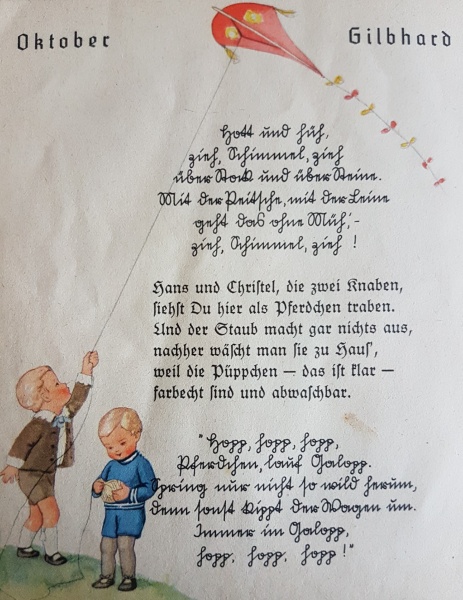 Oktober Gilbhard
Hott und hüh,
zieh, Schimmel, zieh
über Stock und über Steine.
Mit der Peitsche, mit der Leine
geht das ohne Müh',-
zieh, Schimmel, zieh !
Hans und Christel, die zwei Knaben,
siehst Du hier als Pferdchen traben.
Und der Staub macht gar nichts aus,
nachher wäscht man sie zu Haus',
weil die Püppchen — das ist klar —
farbecht sind und abwaschbar.
"Hopp, hopp, hopp,
Pferdchen, lauf Galopp.
Spring nur nicht so wild herum,
denn sonst kippt der Wagen um.
Immer im Galopp,
hopp, hopp, hopp !"